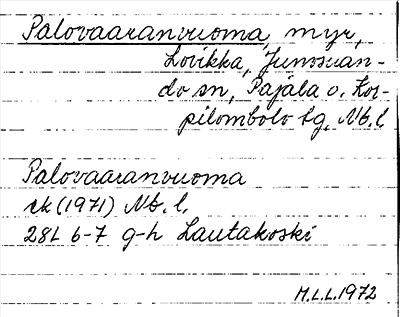 Palovaaranvuoma, myr,
Lovikka, Junosuan-
do sn, Pajala o. Kor-
pilombolo tg, Nb. l.
Palovaaranvuoma
rk (1971) Nb. l.
28L 6-7 g-h Lautakoski
M.L.L. 1972